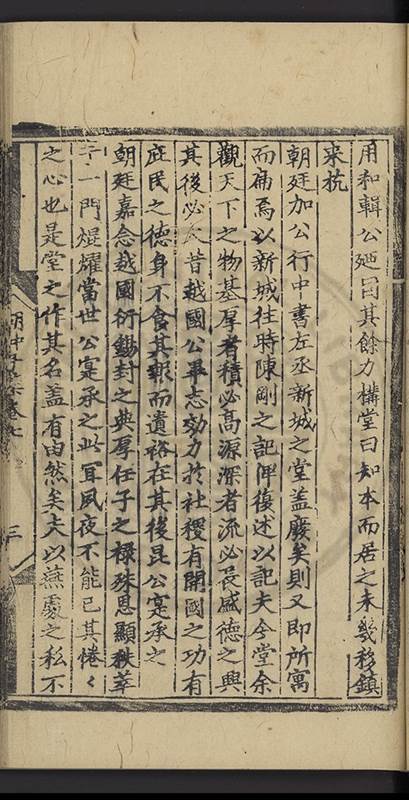 用和輯公廼曰其餘力構堂曰知本而居之未幾移鎮
来杭
朝廷加公行中書左丞新城之堂盖廢矣則又即所寓
而扁焉以新城往時陳剛之記俾復述以記夫今堂余
觀天下之物基厚者積必高源深者流必長盛德之興
其後必大昔越國公畢志効力扵社稷有開國之功有
庇民之德身不食其報而遺裕在其後昆公寔承之
朝廷嘉念越國衍錫封之典厚任子之禄殊恩顯秩萃
于一門焜耀當世公寔承之此宜夙夜不能已其惓々
之心也是堂之作其名盖有由然矣夫以燕處之私不
三